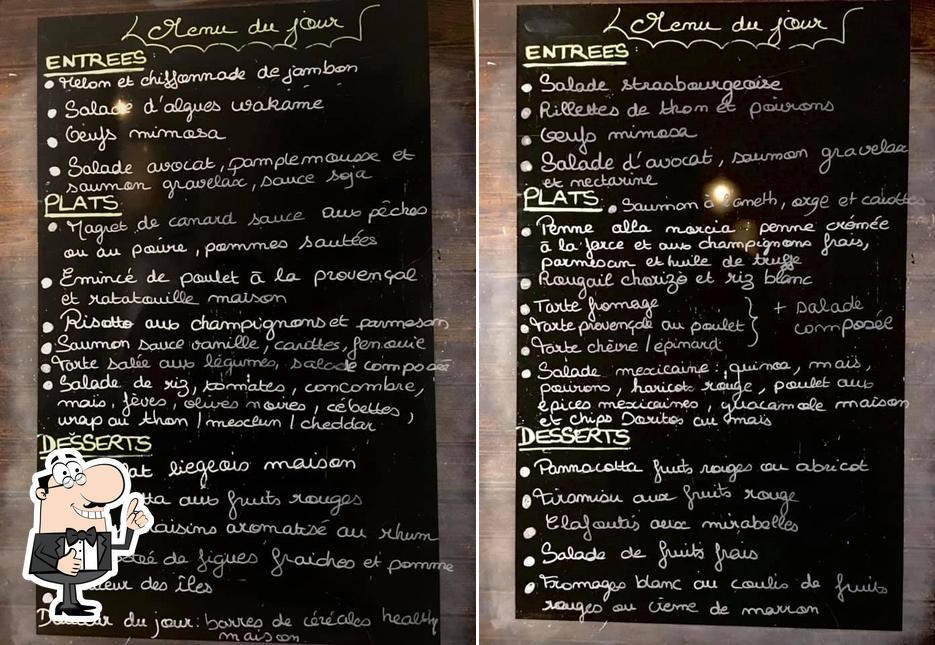 Menu du jour
ENTREES:
Melon et chiffonnade de jambon
Salade d'algues wakame
Oeufs mimosa
Salade avocat, pamplemousse et
saumon gravelax, sauce soja
PLATS
Magret de canard sauce aux pêches
ou au poivre, pommes sautées
Emincé de poulet à la provençal
et ratatouille maison
Risotto aux champignons et parmesan
Saumon sauce vanille, carottes, fenouil
Tarte salée aux légumes, salade composée
Salade de riz, tomates, concombre,
maïs, fèves, olives noires, cébettes,
wrap au thon / mesclun / cheddar
DESSERTS
liegeois maison
aux fruits rouges
raisins aromatisé au rhum
de figues fraiches et pomme
des îles
du jour: barres de céréales healthy
maison
Menu du jour
ENTREES:
Salade strasbourgeoise
Rillettes de thon et poivrons
Oeufs mimosa
Salade d'avocat, saumon gravelax
et nectarine
PLATS
Saumon à l'aneth, orge et carottes
Penne alla norcia: penne crémée
à la farce et aux champignons frais,
parmesan et huile de truffe
Rougail chorizo et riz blanc
Tarte fromage
Tarte provençale au poulet
Tarte chèvre / épinard
+ salade
composée
Salade mexicaine: quinoa, maïs,
poivrons, haricot rouge, poulet aux
épices mexicaines, guacamole maison
et chips Doritos au maïs
DESSERTS
Pannacotta fruits rouges ou abricot
Tiramisu aux fruits rouge
Clafoutis aux mirabelles
Salade de fruits frais
Fromages blanc au coulis de fruits
rouges ou crème de marron